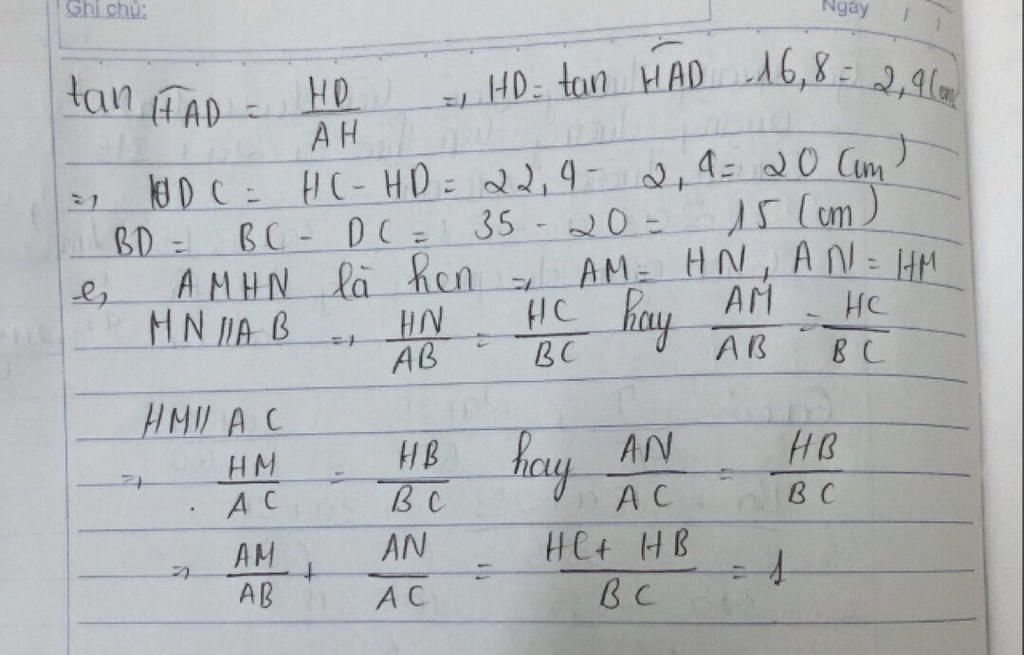 Ghi chú:
Ngày / /
tan HAD = HD/AH => HD = tan HAD . 16,8 = 2,4 (cm
=> DC = HC - HD = 22,4 - 2,4 = 20 (cm)
BD = BC - DC = 35 - 20 = 15 (cm)
e, AMHN là hcn => AM = HN, AN = HM
HN // AB => HN/AB = HC/BC hay AM/AB = HC/BC
HM // AC
=> HM/AC = HB/BC hay AN/AC = HB/BC
=> AM/AB + AN/AC = HC + HB/BC = 1